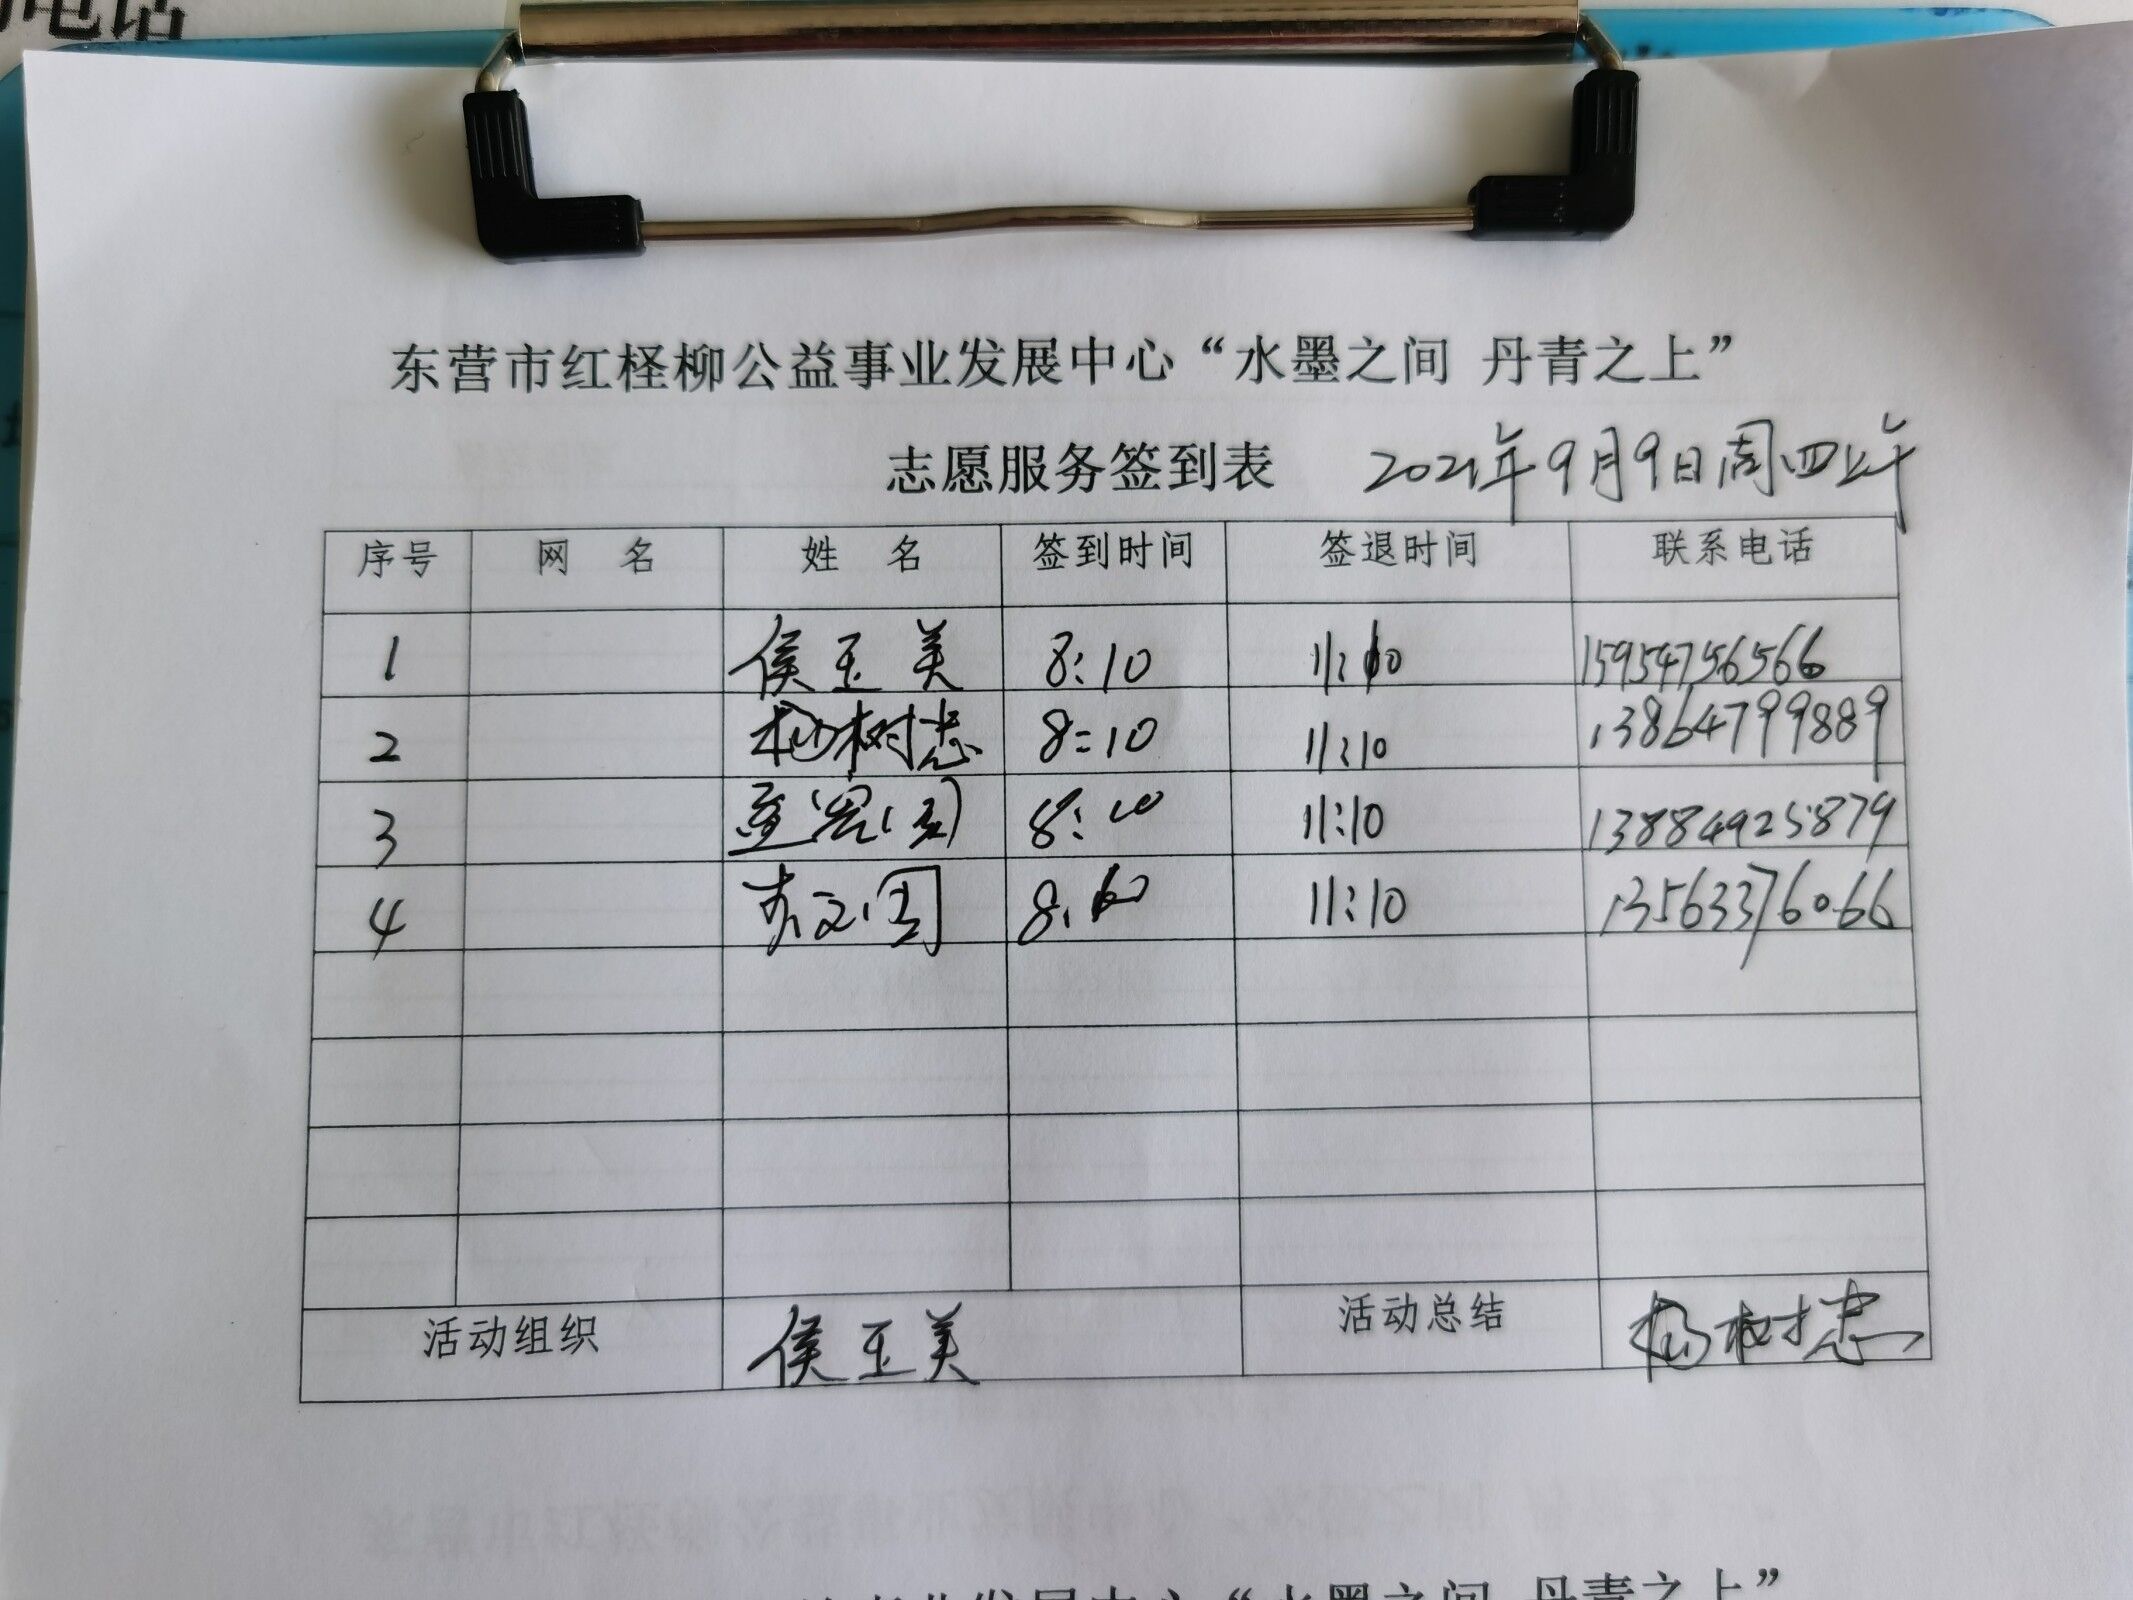 电话
东营市红柽柳公益事业发展中心“水墨之间 丹青之上”
志愿服务签到表 2021年9月9日周四上午
序号 网 名 姓 名 签到时间 签退时间 联系电话
1 侯玉美 8:10 11:10 15954756566
2 杨树志 8:10 11:10 13864799889
3 8:10 11:10 13884925879
4 8:10 11:10 13563376066
活动组织 侯玉美 活动总结 杨树志
发展中心“水墨之间 丹青之上”